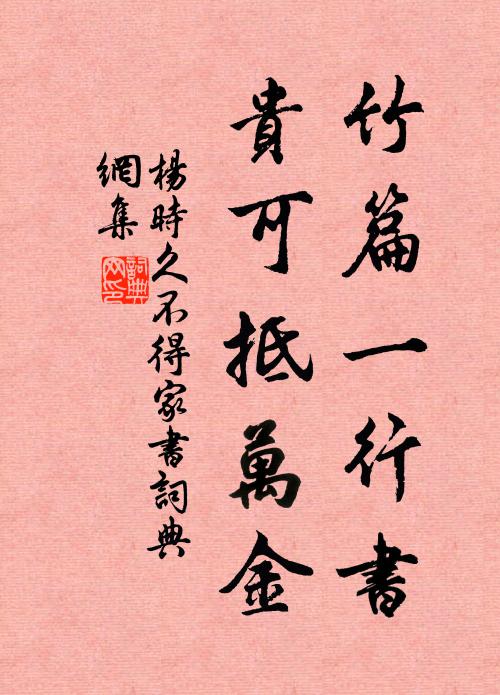 竹篇一行書
貴可抵萬金
楊時久不得家書詞典
網集
詞典
網印